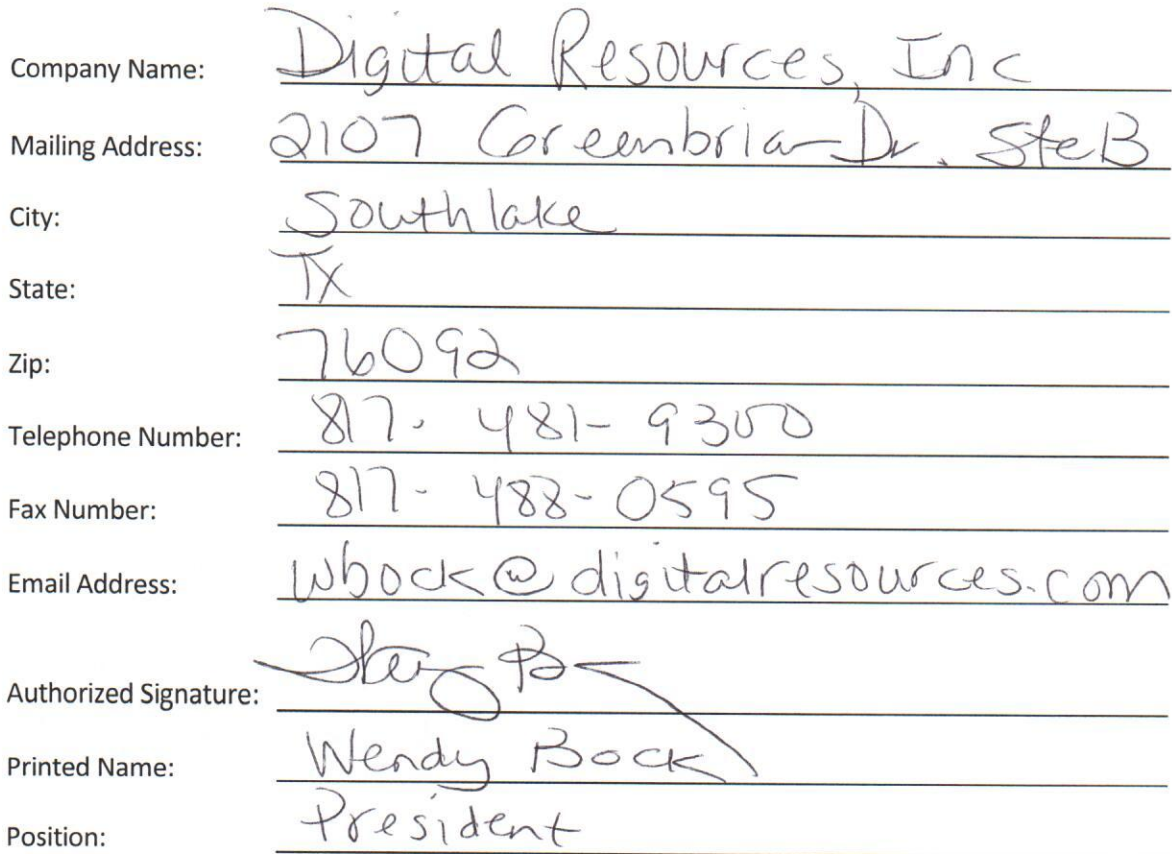 Company Name: Digital Resources, Inc
Mailing Address: 2107 Greenbriar Dr. Ste B
City: Southlake
State: TX
Zip: 76092
Telephone Number: 817. 481-9300
Fax Number: 817- 488-0595
Email Address: wbock@digitalresources.com
Authorized Signature:
Printed Name: Wendy Bock
Position: President